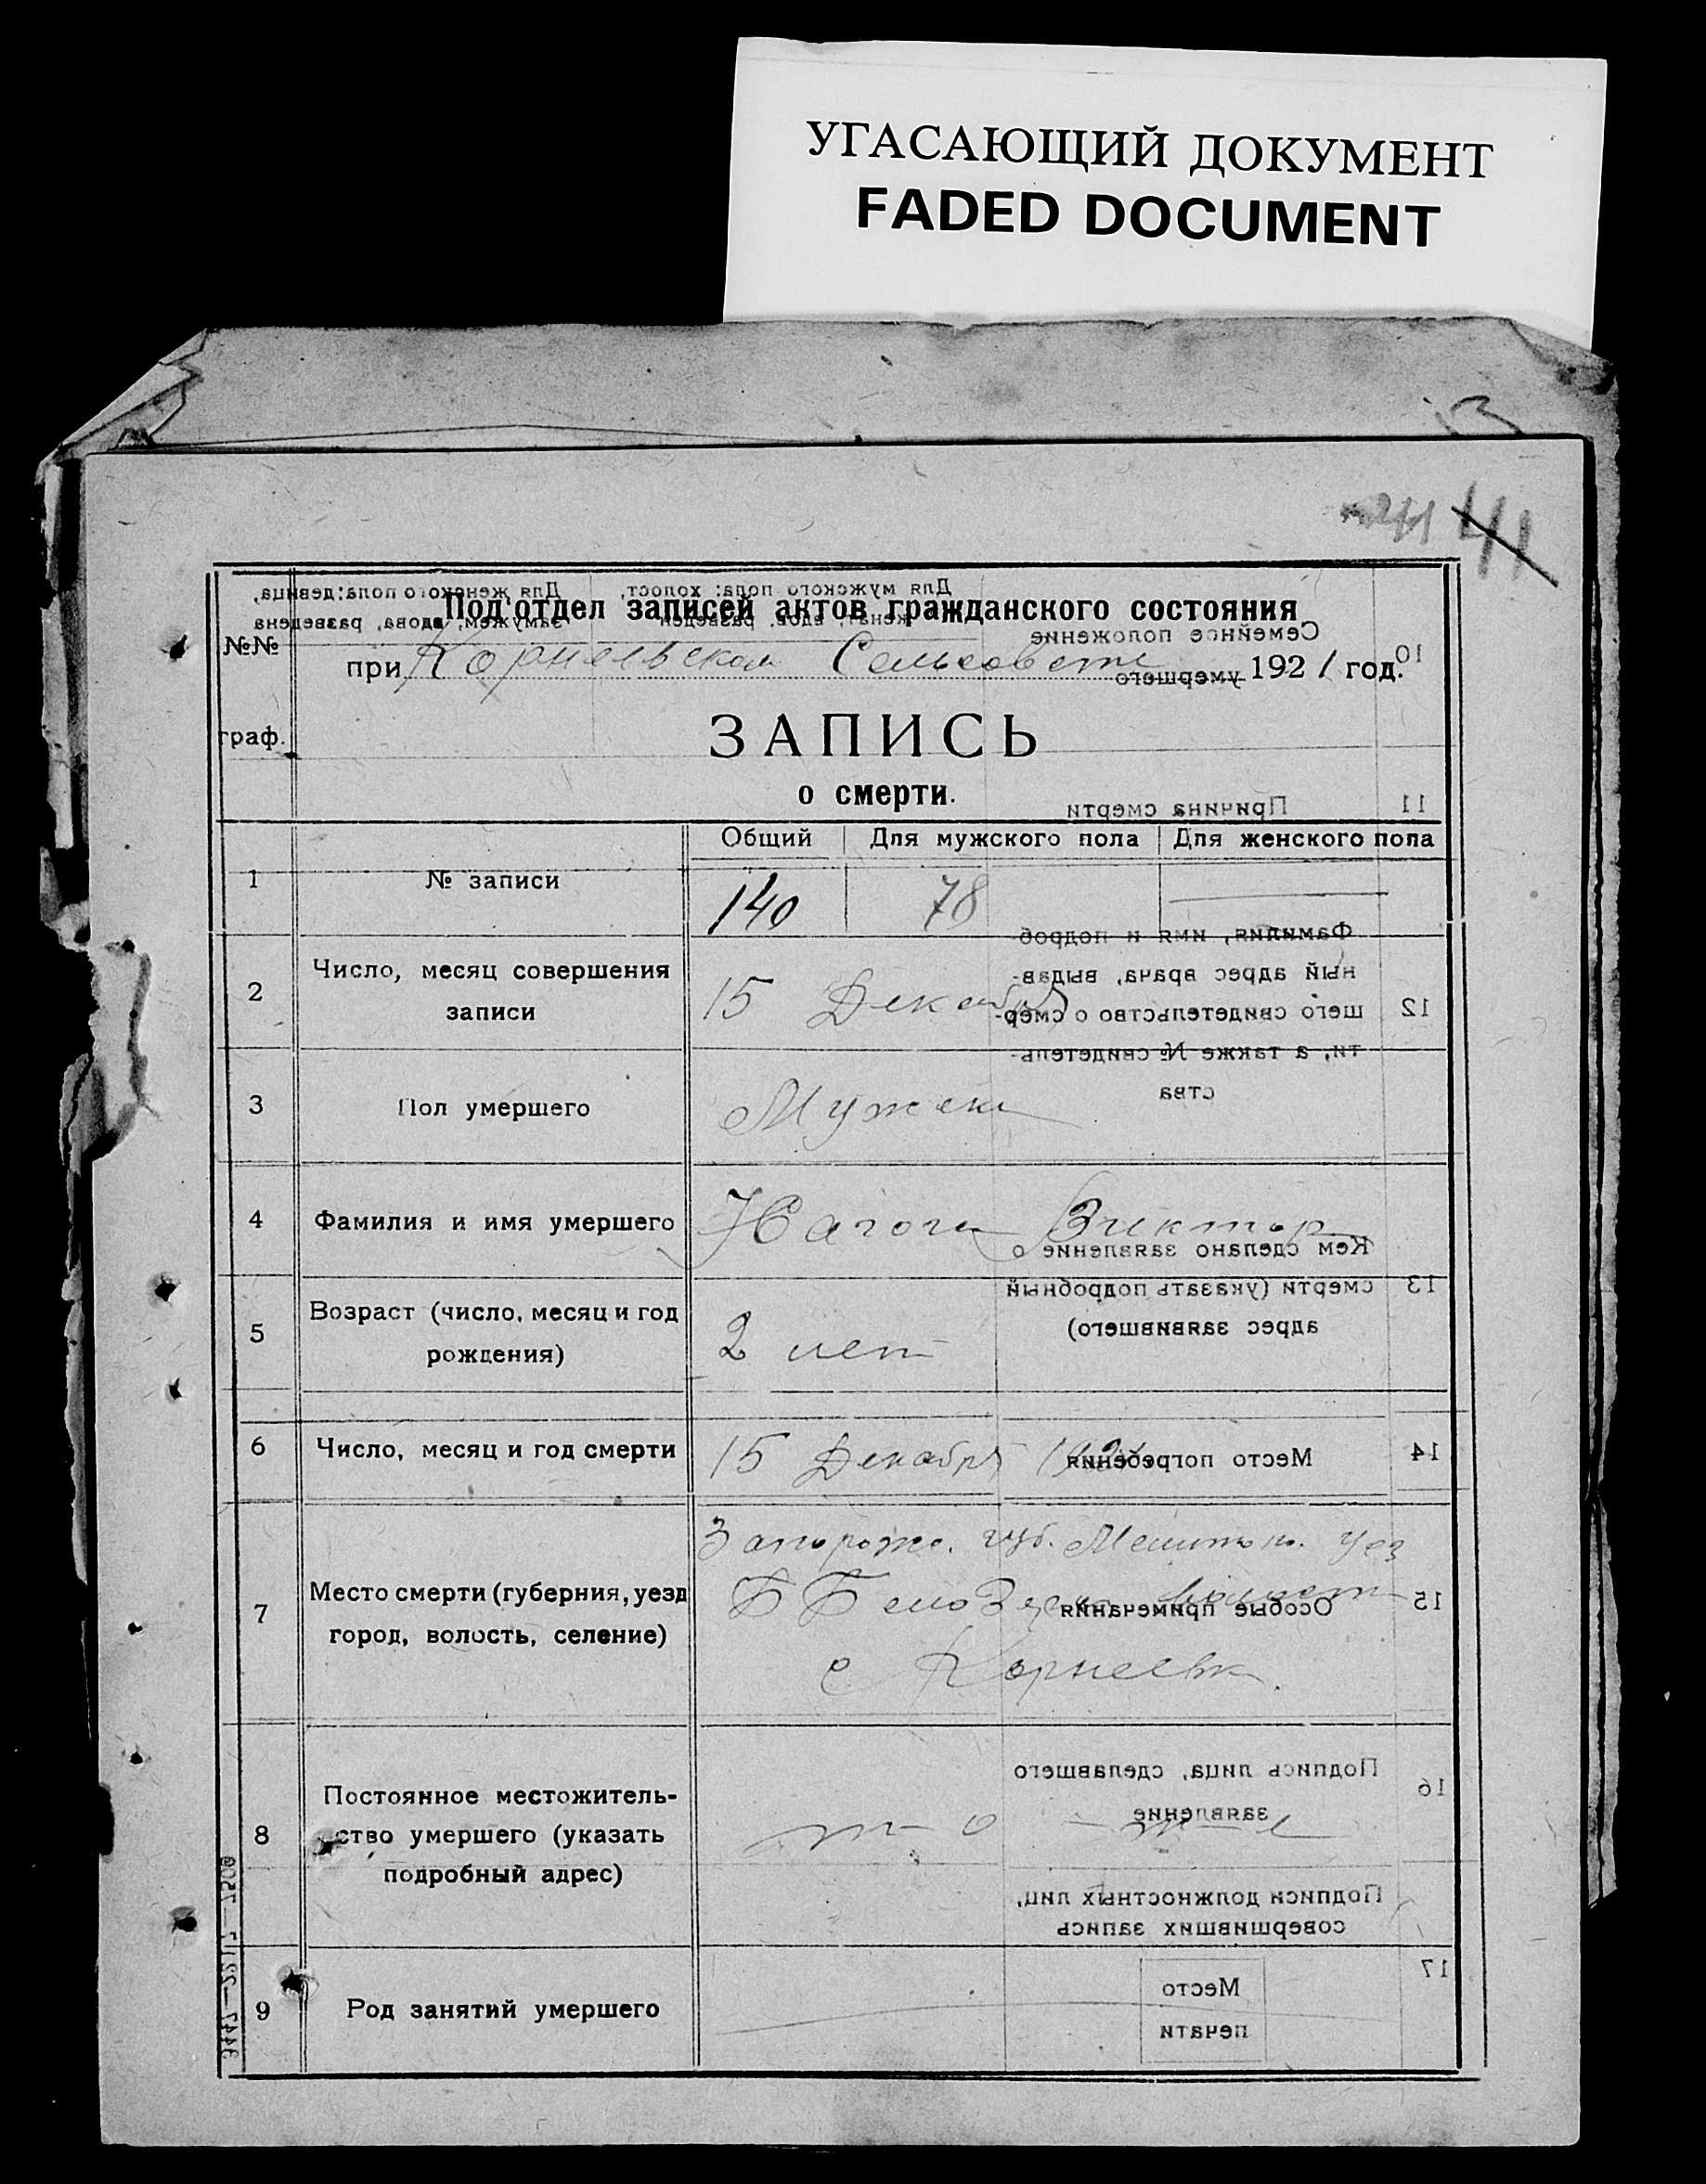 УГАСАЮЩИЙ ДОКУМЕНТ
FADED DOCUMENT
41
Под'отдел записей актов гражданского состояния
№№
при Корнеевском Сельсовете 1921 год.
граф.
ЗАПИСЬ
о смерти.
Общий Для мужского пола Для женского пола
1 № записи 140 78 —
2 Число, месяц совершения
записи 15 Декабря
3 Пол умершего Мужски
4 Фамилия и имя умершего Виктор
5 Возраст (число, месяц и год
рождения) 2 лет
6 Число, месяц и год смерти 15 Декабря 1921
Запорож. губ. Мелитоп. Уез
7 Место смерти (губерния, уезд
город, волость, селение)
с Корнеевк
8 Постоянное местожитель-
ство умершего (указать
подробный адрес) то – же
9 Род занятий умершего —
Для женского пола: девица,
замужем, вдова, разведена
Для мужского пола: холост,
женат, вдов, разведен
Семейное положение
умершего
10
Причина смерти 11
Фамилия, имя и подроб
ный адрес врача, выдав-
шего свидетельство о смер-
ти, а также № свидетель-
ства
12
Кем сделано заявление о
смерти (указать подробный
адрес заявившего)
13
Место погребения 14
Особые примечания 15
Подпись лица, сделавшего
заявление
16
Подписи должностных лиц,
совершивших запись
17
Место
печати